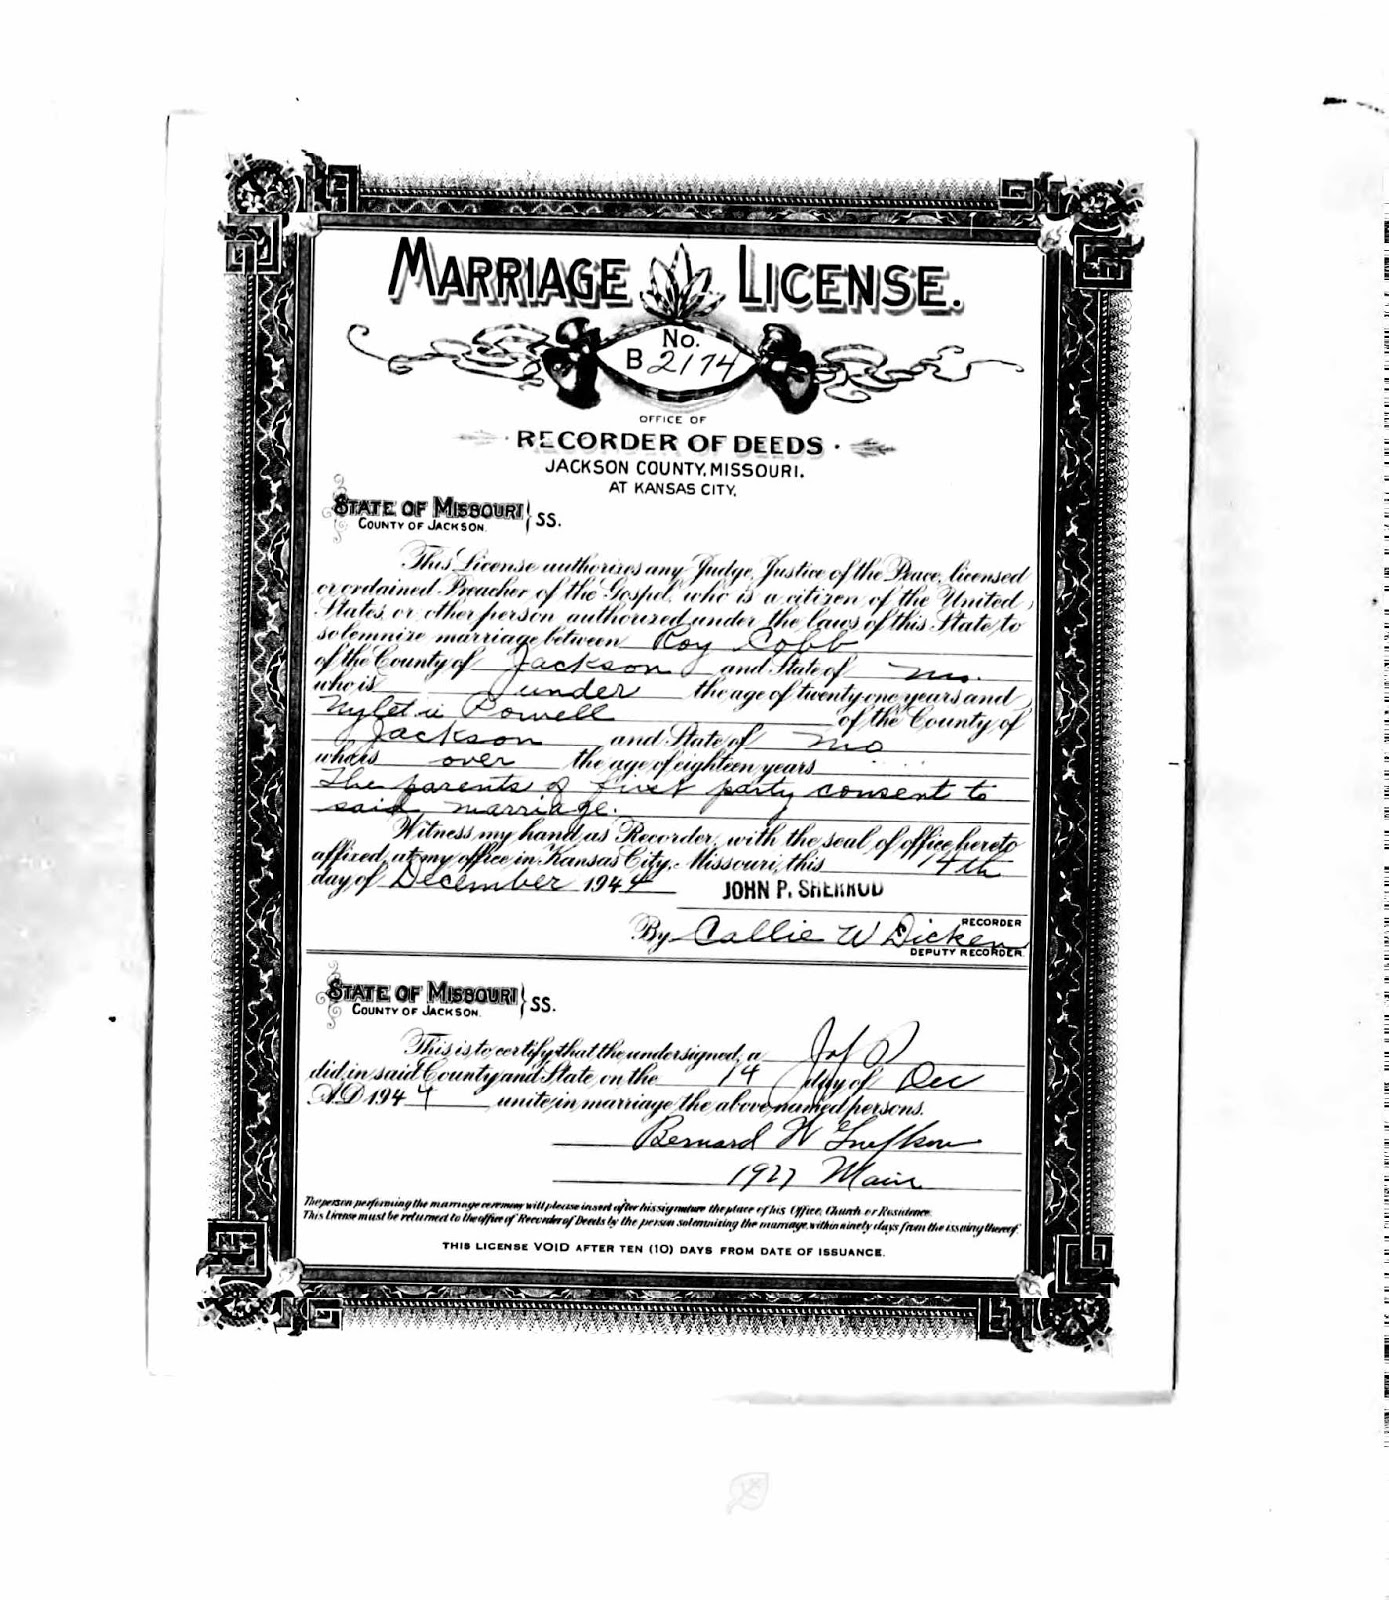 MARRIAGE LICENSE.
No.
B 2174
OFFICE OF
RECORDER OF DEEDS
JACKSON COUNTY, MISSOURI.
AT KANSAS CITY.
STATE OF MISSOURI
COUNTY OF JACKSON. } SS.
This License authorizes any Judge, Justice of the Peace, licensed
or ordained Preacher of the Gospel, who is a citizen of the United
States, or other person authorized under the laws of this State, to
solemnize marriage between Roy Cobb
of the County of Jackson and State of Mo.
who is under the age of twenty one years and
Powell of the County of
Jackson and State of Mo
who is over the age of eighteen years
The parents of first party consent to
said marriage.
Witness my hand as Recorder, with the seal of office hereto
affixed, at my office in Kansas City, Missouri, this 14th
day of December 1944 JOHN P. SHERROD
RECORDER
By Callie W Dicken
DEPUTY RECORDER.
STATE OF MISSOURI
COUNTY OF JACKSON. } SS.
This is to certify that the undersigned, a J of P
did, in said County and State, on the 14 day of Dec
A.D. 1944 unite in marriage the above named persons.
Bernard W
1927 Main
The person performing the marriage ceremony will please insert after his signature the place of his Office, Church or Residence.
This License must be returned to the office of Recorder of Deeds by the person solemnizing the marriage, within ninety days from the issuing thereof.
THIS LICENSE VOID AFTER TEN (10) DAYS FROM DATE OF ISSUANCE.